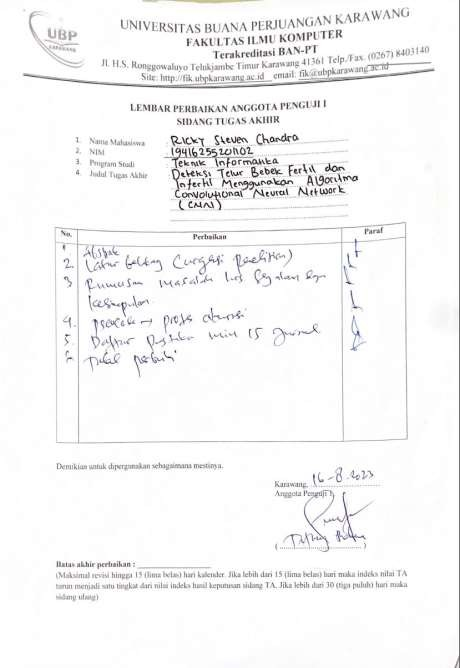 UBP
KARAWANG
UNIVERSITAS BUANA PERJUANGAN KARAWANG
FAKULTAS ILMU KOMPUTER
Terakreditasi BAN-PT
Jl. H.S. Ronggowaluyo Telukjambe Timur Karawang 41361 Telp./Fax. (0267) 8403140
Site: http://fik.ubpkarawang.ac.id email: fik@ubpkarawang.ac.id
LEMBAR PERBAIKAN ANGGOTA PENGUJI I
SIDANG TUGAS AKHIR
1. Nama Mahasiswa : Ricky Steven Chandra
2. NIM : 19416255201102
3. Program Studi : Teknik Informatika
4. Judul Tugas Akhir : Deteksi Telur Bebek Fertil dan
Infertil Menggunakan Algoritma
Convolutional Neural Network
(CNN)
No. Perbaikan Paraf
1 Abstrak
2. Latar belakang (urgensi penelitian)
3 Rumusan masalah harus
kesimpulan
4. proses
5. Daftar pustaka min 15 jurnal
6
Demikian untuk dipergunakan sebagaimana mestinya.
Karawang, 16-8-2023
Anggota Penguji I,
Batas akhir perbaikan :
(Maksimal revisi hingga 15 (lima belas) hari kalender. Jika lebih dari 15 (lima belas) hari maka indeks nilai TA
turun menjadi satu tingkat dari nilai indeks hasil keputusan sidang TA. Jika lebih dari 30 (tiga puluh) hari maka
sidang ulang)